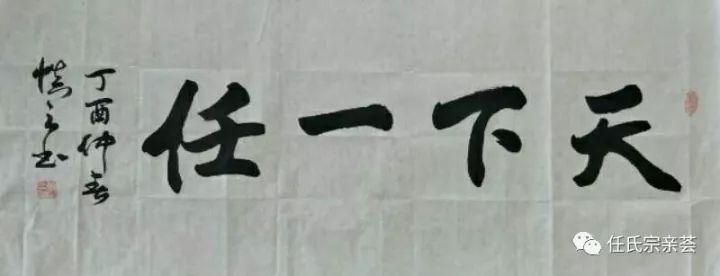 天下一任
丁酉仲春
慎之书
任氏宗亲荟